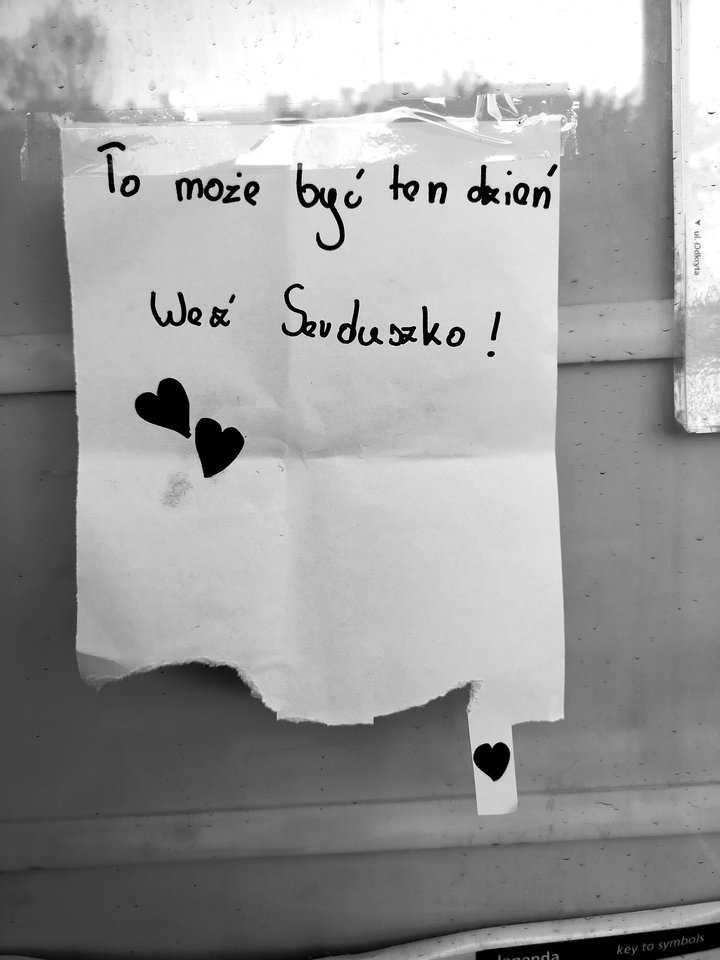 To może być ten dzień
Weź Serduszko!
ul. Odkryta
legenda
key to symbols